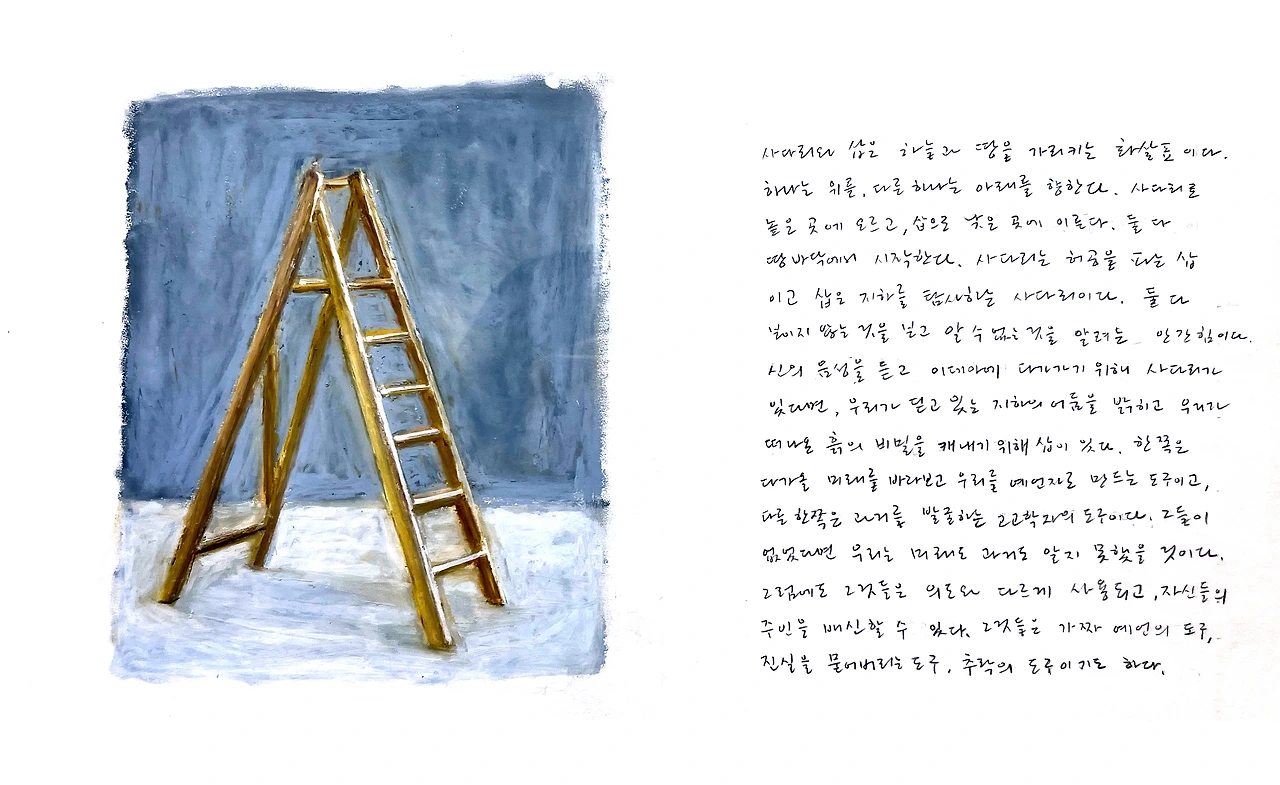 사다리와 삽은 하늘과 땅을 가리키는 화살표이다.
하나는 위를, 다른 하나는 아래를 향한다. 사다리로
높은 곳에 오르고, 삽으로 낮은 곳에 이른다. 둘 다
땅바닥에서 시작한다. 사다리는 허공을 파는 삽
이고 삽은 지하를 탐사하는 사다리이다. 둘 다
보이지 않는 것을 보고 알 수 없는 것을 알려는 안간힘이다.
신의 음성을 듣고 이데아에 다가가기 위해 사다리가
있다면, 우리가 딛고 있는 지하의 어둠을 밝히고 우리가
떠나온 흙의 비밀을 캐내기 위해 삽이 있다. 한 쪽은
다가올 미래를 바라보고 우리를 예언자로 만드는 도구이고,
다른 한쪽은 과거를 발굴하는 고고학자의 도구이다. 그들이
없었다면 우리는 미래도 과거도 알지 못했을 것이다.
그럼에도 그것들은 의도와 다르게 사용되고, 자신들의
주인을 배신할 수 있다. 그것들은 가짜 예언의 도구,
진실을 묻어버리는 도구, 추락의 도구이기도 하다.